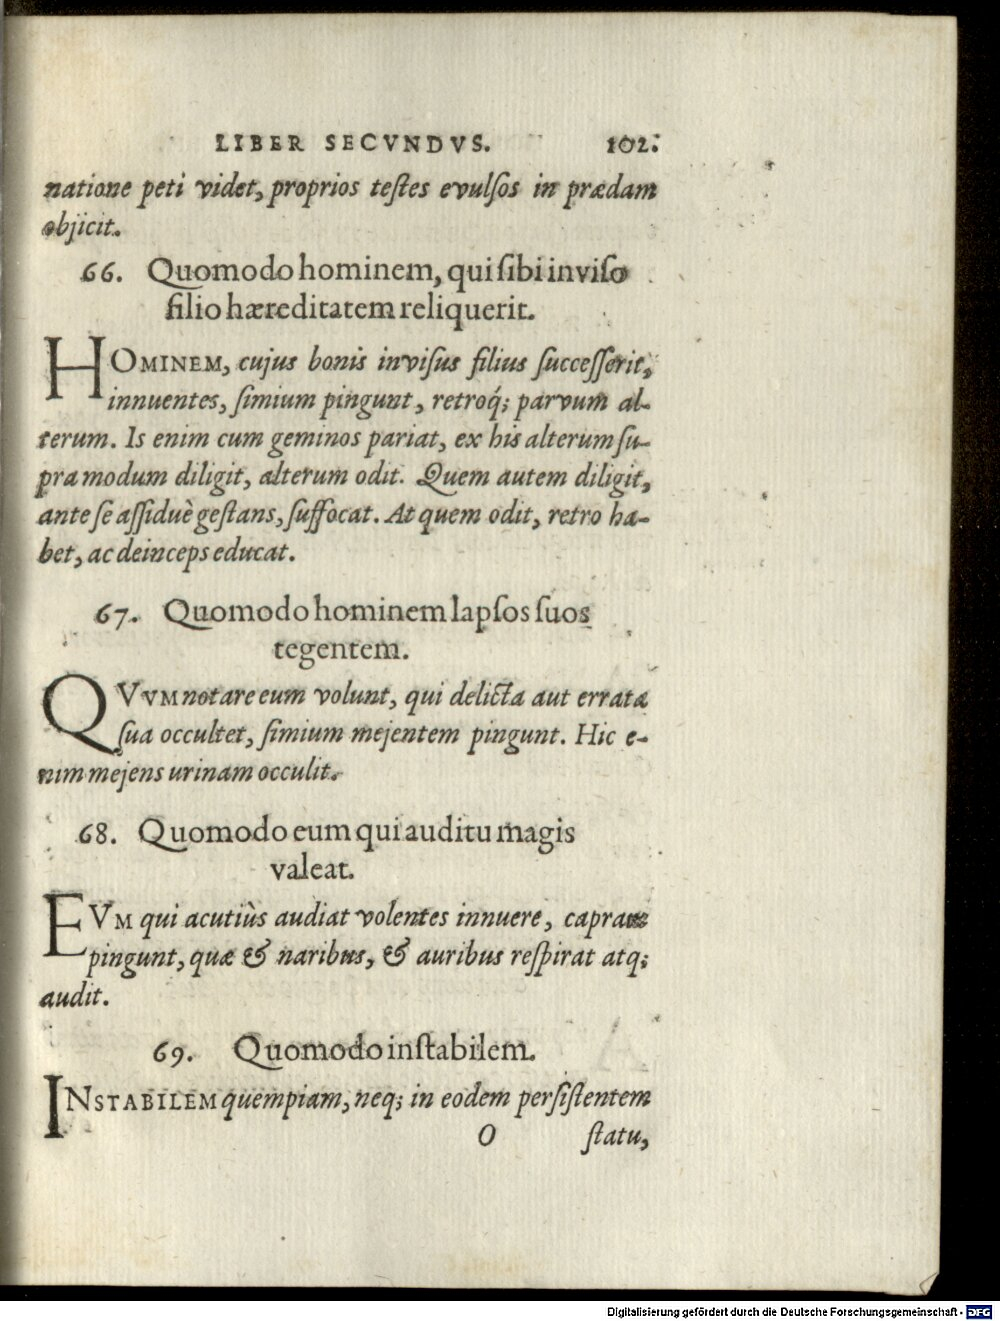 LIBER SECVNDVS. 102.
natione peti videt, proprios teſtes evulſos in prædam
objicit.
66. Quomodo hominem, qui ſibi inviſo
filio hæreditatem reliquerit.
HOMINEM, cujus bonis inviſus filius ſucceſſerit,
innuentes, ſimium pingunt, retroq́; parvum al-
terum. Is enim cum geminos pariat, ex his alterum ſu-
pra modum diligit, alterum odit. Quem autem diligit,
ante ſe aſſiduè geſtans, ſuffocat. At quem odit, retro ha-
bet, ac deinceps educat.
67. Quomodo hominem lapſos ſuos
tegentem.
QVVM notare eum volunt, qui delicta aut errata
ſua occultet, ſimium mejentem pingunt. Hic e-
nim mejens urinam occulit.
68. Quomodo eum qui auditu magis
valeat.
EVM qui acutiùs audiat volentes innuere, capram
pingunt, quæ & naribus, & auribus reſpirat atq;
audit.
69. Quomodo inſtabilem.
INSTABILEM quempiam, neq; in eodem perſiſtentem
O ſtatu,
Digitalisierung gefördert durch die Deutsche Forschungsgemeinschaft - DFG